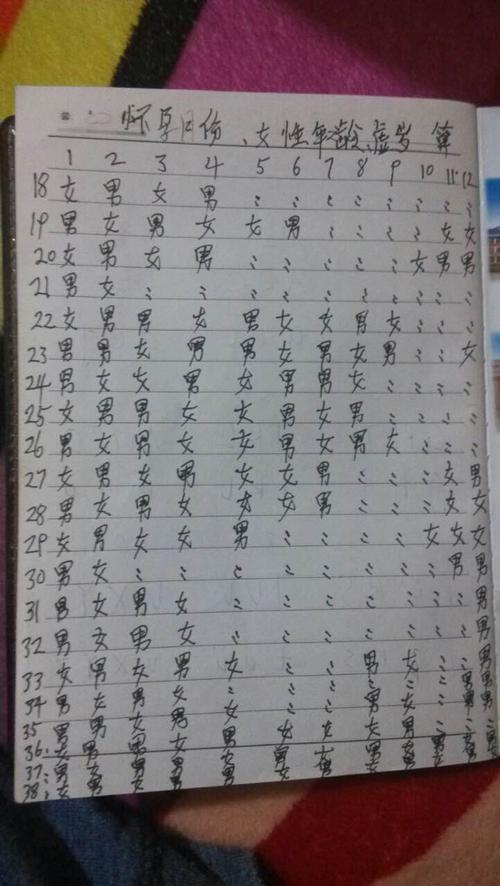 怀孕月份、女性年龄虚岁 算
1 2 3 4 5 6 7 8 9 10 11 12
18 女 男 女 男 : : : : : : : :
19 男 女 男 女 女 男 : : : : 女 女
20 女 男 女 男 : : : : : 女 男 男
21 男 女 : : : : : : : : : :
22 女 男 男 女 男 女 女 男 女 : : :
23 男 男 女 男 男 女 男 女 男 : : 女
24 男 女 女 男 女 男 男 女 : : : :
25 女 男 男 女 女 男 女 男 : : : :
26 男 女 男 女 女 男 女 男 女 : : :
27 女 男 女 男 女 女 男 : : : 女 男
28 男 女 男 女 女 女 男 : : : 女 女
29 女 男 女 女 男 : : : : 女 女 女
30 男 女 : : : : : : : : 男 男
31 男 女 男 女 : : : : : : : 男
32 男 女 男 女 : : : : : : : 男
33 女 男 女 男 女 : : 男 女 : : 男
34 男 女 男 女 : : : 男 女 : 男 男
35 男 男 女 男 女 : : 女 男
36
37
38